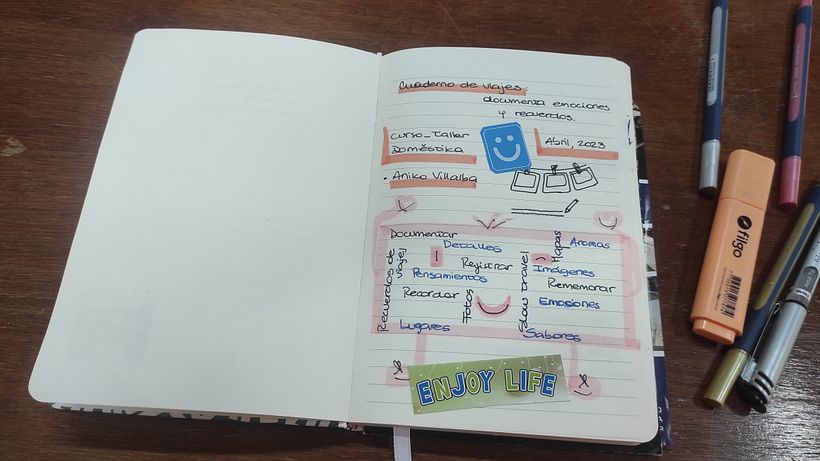 Cuaderno de viajes:
documenta emociones
y recuerdos.
Curso_Taller
Doměstika
Abril, 2023
• Aniko Villalba
Documentar
Detalles
Mapas
Aromas
Recuerdos de
viajes
Registrar
Slow travel
Imágenes
Pensamientos
Rememorar
Recordar
Fotos
Emociones
Lugares
Sabores
ENJOY LIFE
filgo